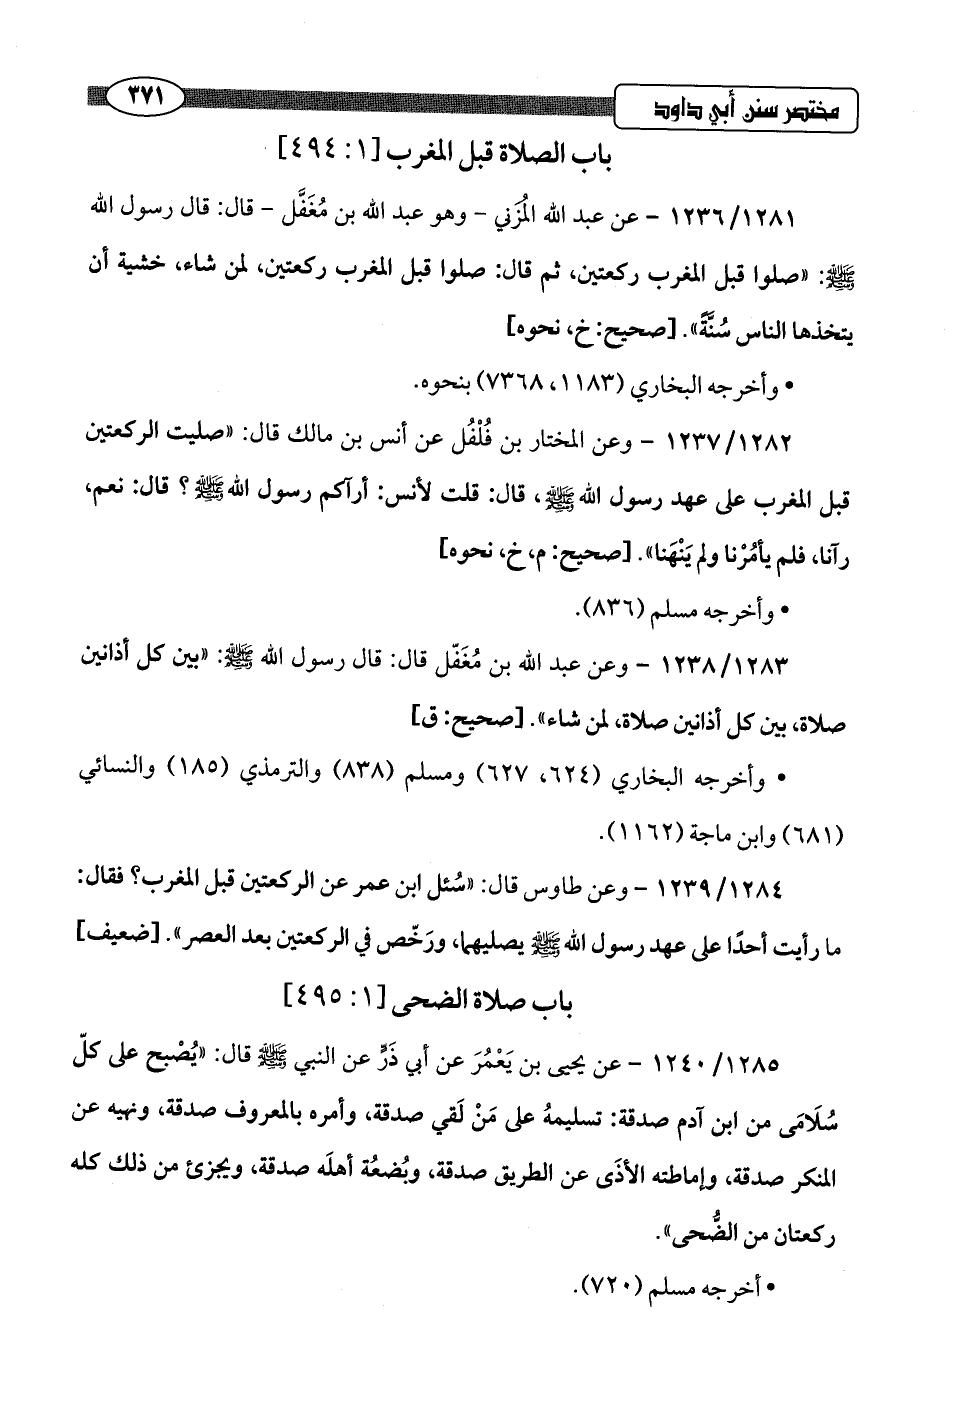 مختصر سنن أبي داود ٣٧١
باب الصلاة قبل المغرب [١: ٤٩٤]
١٢٣٦/١٢٨١ - عن عبد الله المُزَني - وهو عبد الله بن مُغَفَّل - قال: قال رسول الله
ﷺ: «صلوا قبل المغرب ركعتين، ثم قال: صلوا قبل المغرب ركعتين، لمن شاء، خشية أن
يتخذها الناس سُنَّةً». [صحيح: خ، نحوه]
• وأخرجه البخاري (١١٨٣، ٧٣٦٨) بنحوه.
١٢٣٧/١٢٨٢ - وعن المختار بن فُلْفُل عن أنس بن مالك قال: «صليت الركعتين
قبل المغرب على عهد رسول الله ﷺ، قال: قلت لأنس: أرآكم رسول الله ﷺ؟ قال: نعم،
رآنا، فلم يأمُرْنا ولم يَنْهَنا». [صحيح: م، خ، نحوه]
• وأخرجه مسلم (٨٣٦).
١٢٣٨/١٢٨٣ - وعن عبد الله بن مُغَفّل قال: قال رسول الله ﷺ: «بين كل أذانين
صلاة، بين كل أذانين صلاة، لمن شاء». [صحيح: ق]
• وأخرجه البخاري (٦٢٤، ٦٢٧) ومسلم (٨٣٨) والترمذي (١٨٥) والنسائي
(٦٨١) وابن ماجة (١١٦٢).
١٢٣٩/١٢٨٤ - وعن طاوس قال: «سُئل ابن عمر عن الركعتين قبل المغرب؟ فقال:
ما رأيت أحدًا على عهد رسول الله ﷺ يصليهما، ورَخّص في الركعتين بعد العصر». [ضعيف]
باب صلاة الضحى [١: ٤٩٥]
١٢٤٠/١٢٨٥ - عن يحيى بن يَعْمُرَ عن أبي ذَرٍّ عن النبي ﷺ قال: «يُصْبح على كلّ
سُلَامَى من ابن آدم صدقة: تسليمهُ على مَنْ لَقي صدقة، وأمره بالمعروف صدقة، ونهيه عن
المنكر صدقة، وإماطته الأذَى عن الطريق صدقة، وبُضعُة أهلَه صدقة، ويجزئ من ذلك كله
ركعتان من الضُّحى».
• أخرجه مسلم (٧٢٠).